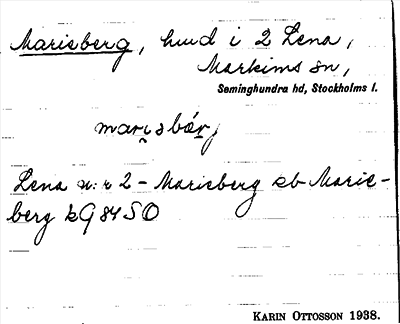 Marieberg, hmd i 2 Lena,
Markims sn,
Seminghundra hd, Stockholms l.
mari̯sbær̯j
Lena n:r 2 - Marieberg eb Marie-
berg kG 84 SO
KARIN OTTOSSON 1938.